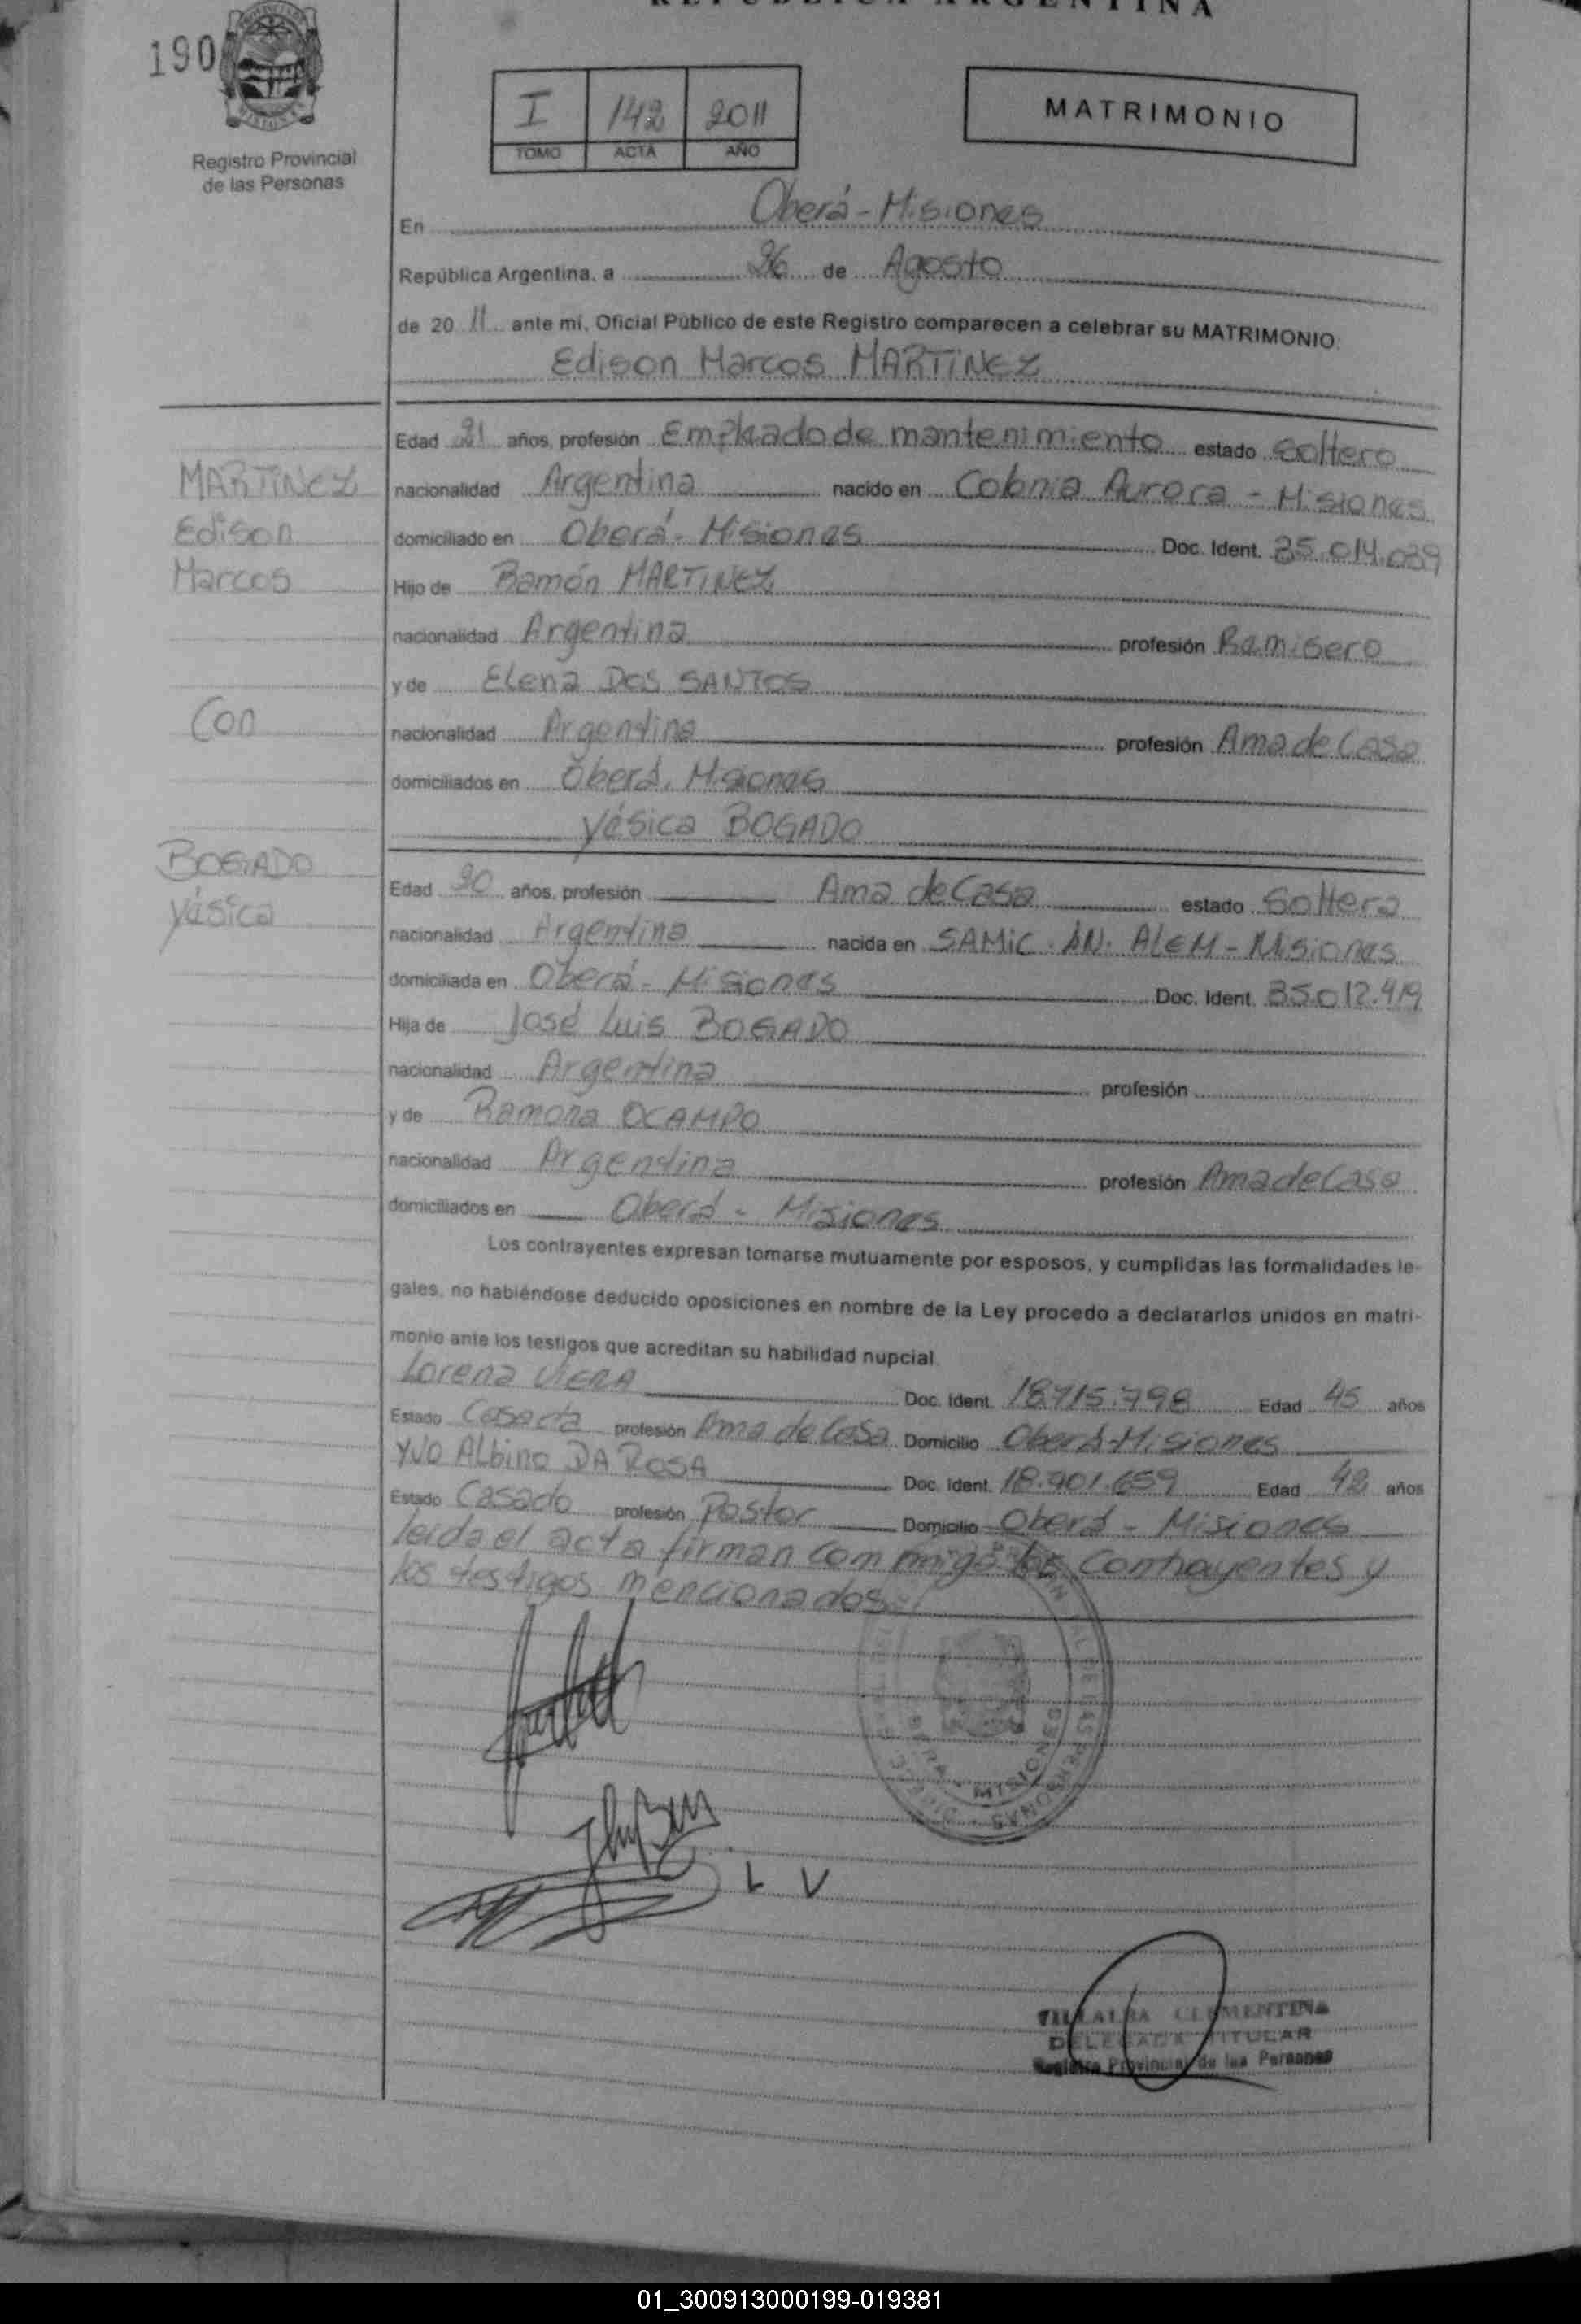 REPUBLICA ARGENTINA
190
Registro Provincial
de las Personas
I 142 2011
TOMO ACTA AÑO
MATRIMONIO
En Oberá - Misiones
República Argentina, a 26 de Agosto
de 20 11 ante mí, Oficial Público de este Registro comparecen a celebrar su MATRIMONIO:
Edison Marcos MARTINEZ
MARTINEZ
Edison
Marcos
Con
BOGADO
Yésica
Edad 21 años, profesión Empleado de mantenimiento estado Soltero
nacionalidad Argentina nacido en Colonia Aurora - Misiones
domiciliado en Oberá - Misiones Doc. Ident. 35.014.039
Hijo de Ramón MARTINEZ
nacionalidad Argentina profesión Remisero
y de Elena DOS SANTOS
nacionalidad Argentina profesión Ama de Casa
domiciliados en Oberá. Misiones
Yésica BOGADO
Edad 20 años, profesión Ama de Casa estado Soltera
nacionalidad Argentina nacida en SAMIC. LN. ALEM - Misiones
domiciliada en Oberá - Misiones Doc. Ident. 35.012.419
Hija de José Luis BOGADO
nacionalidad Argentina profesión
y de Ramona OCAMPO
nacionalidad Argentina profesión Ama de Casa
domiciliados en Oberá - Misiones
Los contrayentes expresan tomarse mutuamente por esposos, y cumplidas las formalidades le-
gales, no habiéndose deducido oposiciones en nombre de la Ley procedo a declararlos unidos en matri-
monio ante los testigos que acreditan su habilidad nupcial.
Lorena VIERA Doc. Ident. 18.715.798 Edad 45 años
Estado Casada profesión Ama de Casa Domicilio Oberá - Misiones
YVO Albino DA ROSA Doc. Ident. 18.901.659 Edad 42 años
Estado Casado profesión Pastor Domicilio Oberá - Misiones
leida el acta firman com migo los Contrayentes y
los testigos mencionados
DE LAS PERSONAS
MISIONES
L V
VILLALBA CLEMENTINA
DELEGADA TITULAR
Registro Provincial de las Personas
01_300913000199-019381